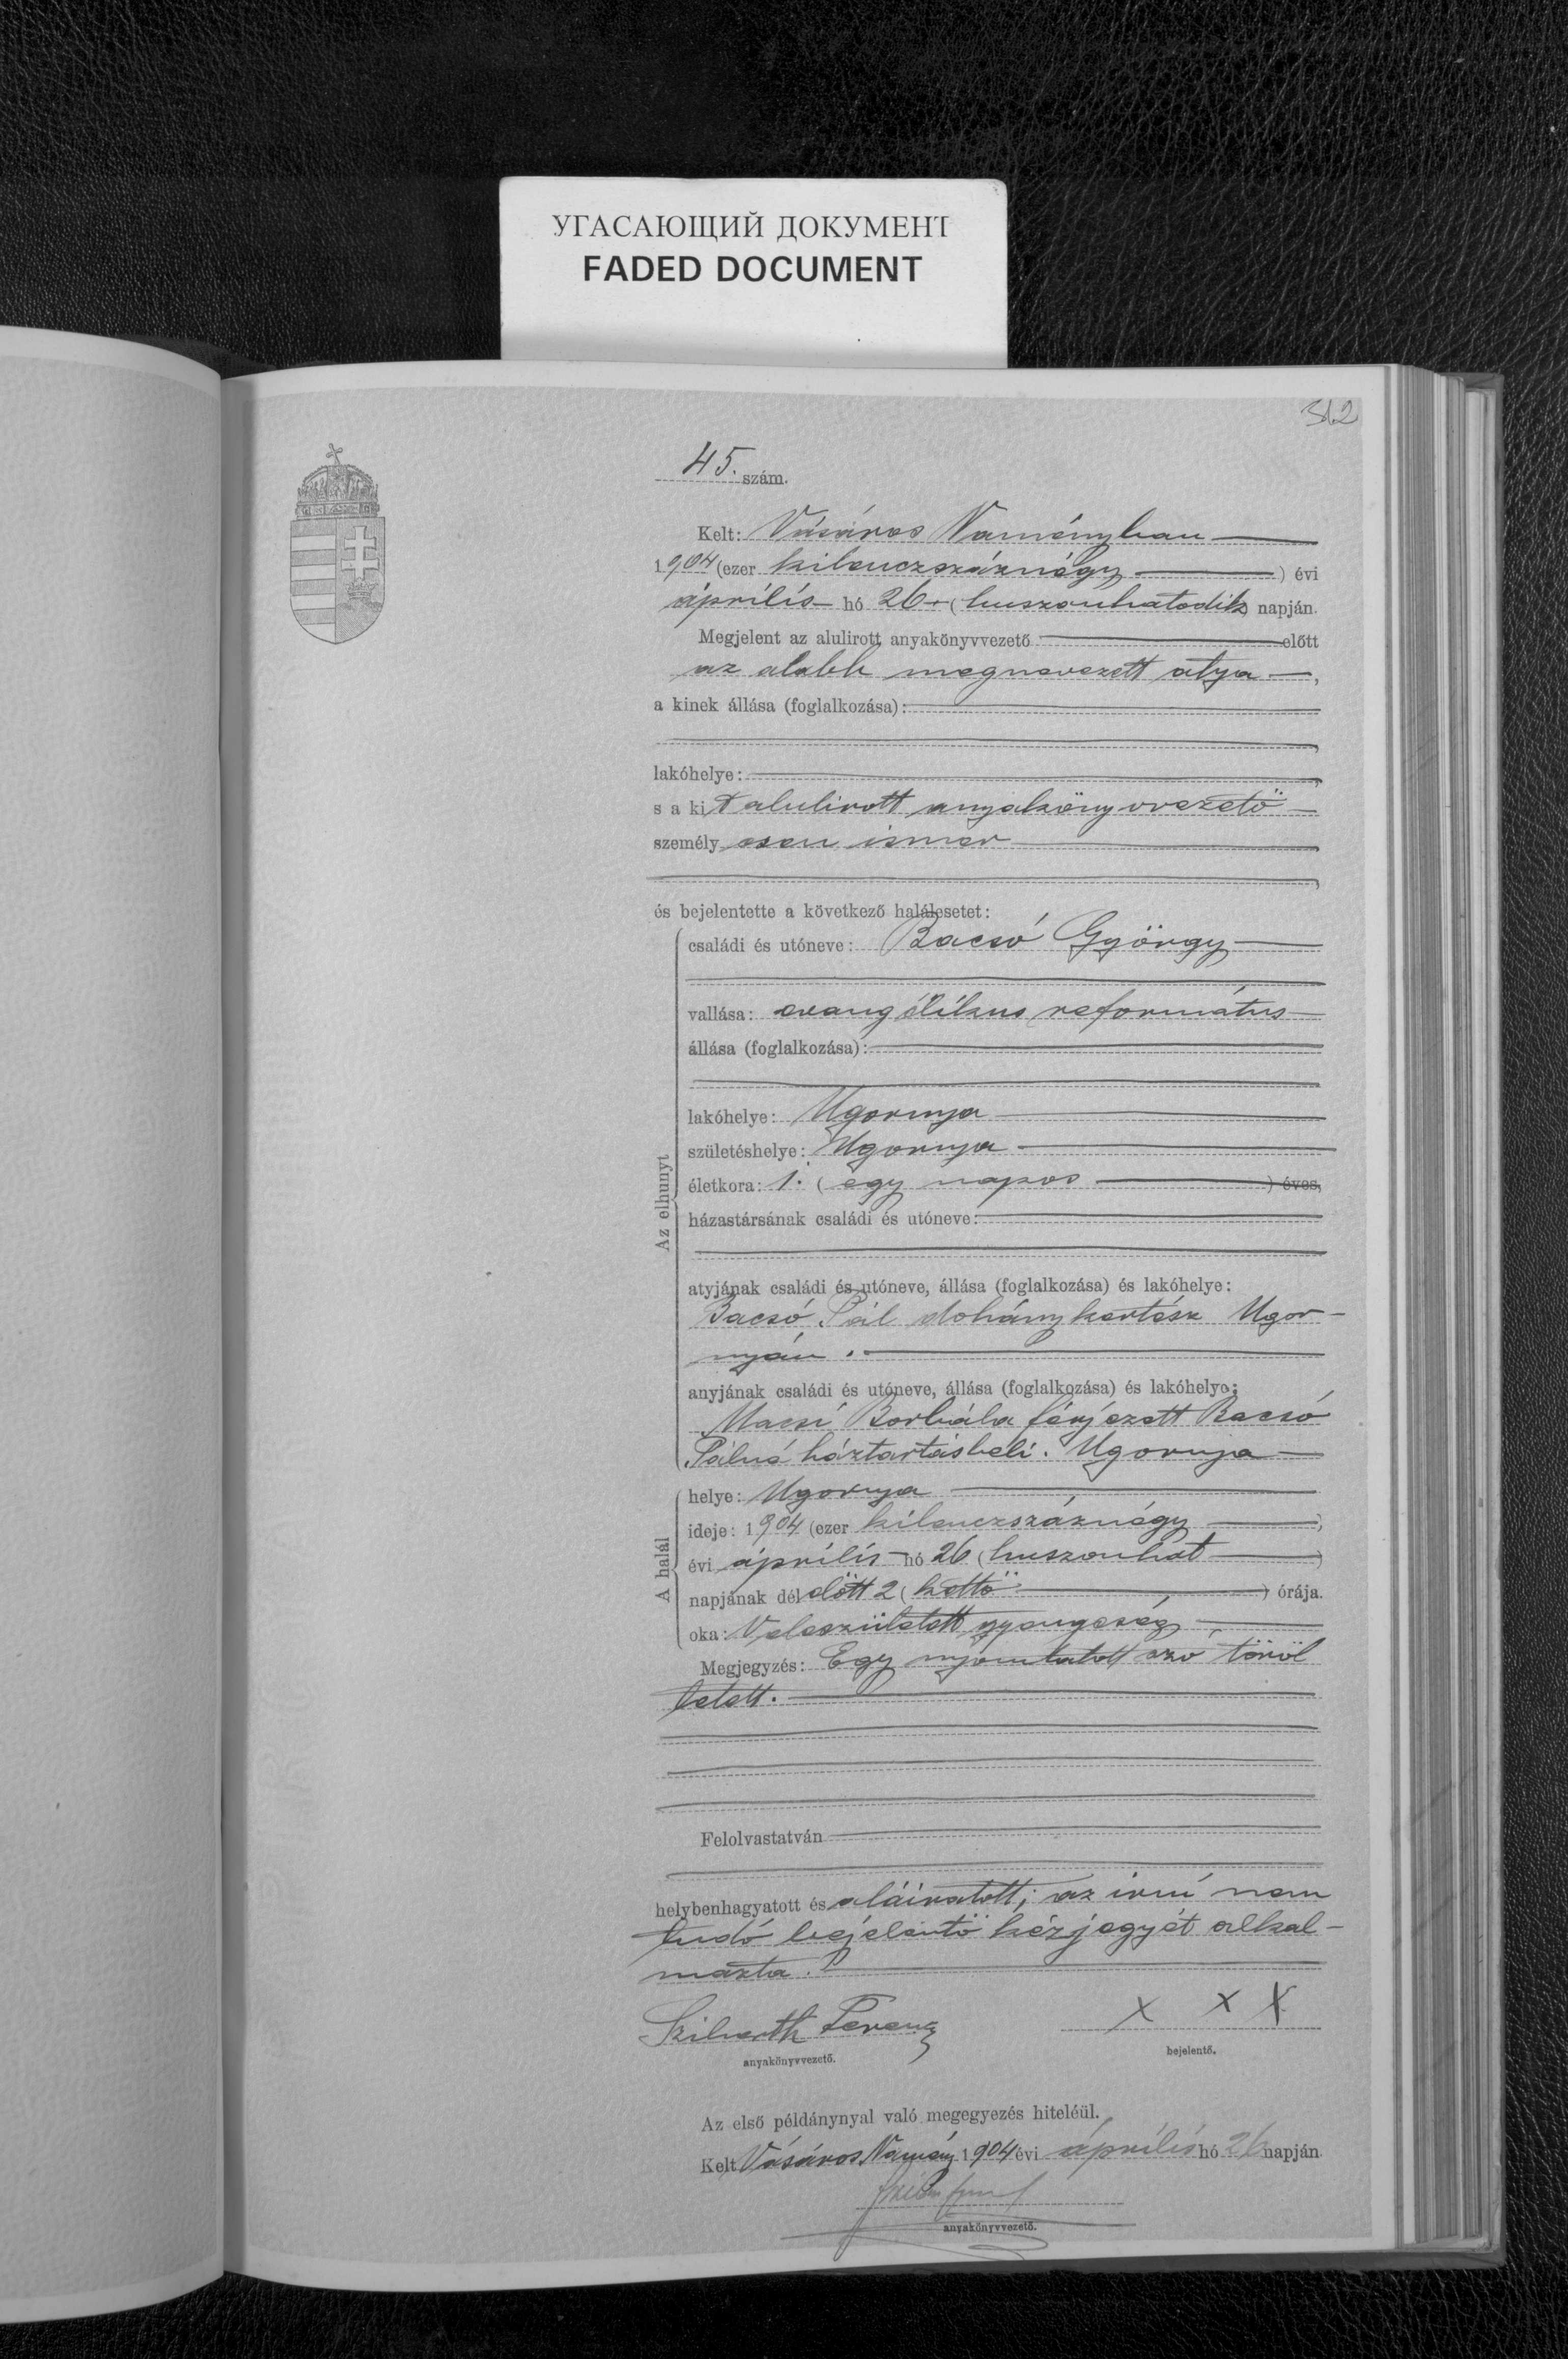 УГАСАЮЩИЙ ДОКУМЕНТ
FADED DOCUMENT
312
45. szám.
Kelt: Vásáros Naményban
1904 (ezer kilenczszáznégy ) évi
április hó 26 (huszonhatodik) napján.
Megjelent az alulirott anyakönyvvezető előtt
az alább megnevezett atya ,
a kinek állása (foglalkozása):
lakóhelye:
s a kit alulirott anyakönyvvezető
személyesen ismer
és bejelentette a következő halálesetet:
Az elhunyt
családi és utóneve: Bacsó György
vallása: evangélikus református
állása (foglalkozása):
lakóhelye: Ugornya
születéshelye: Ugornya
életkora: 1. ( egy napos ) éves,
házastársának családi és utóneve:
atyjának családi és utóneve, állása (foglalkozása) és lakóhelye:
Bacsó Pál dohánykertész Ugor-
nyán.
anyjának családi és utóneve, állása (foglalkozása) és lakóhelye:
Macsi Borbála férjezett Bacsó
Pálné háztartásbeli. Ugornya
A halál
helye: Ugornya
ideje: 1904 (ezer kilenczszáznégy )
évi április hó 26 (huszonhat )
napjának délelőtt 2 (kettő ) órája.
oka: Veleszületett gyengeség
Megjegyzés: Egy nyomtatott szó töröl
tetett.
Felolvastatván
helybenhagyatott és aláiratott; az irni nem
tudó bejelentő kézjegyét alkal-
mazta.
Ferencz
x x x
anyakönyvvezető.
bejelentő.
Az első példánynyal való megegyezés hiteléül.
Kelt Vásáros Namény 1904 évi április hó 26 napján
anyakönyvvezető.